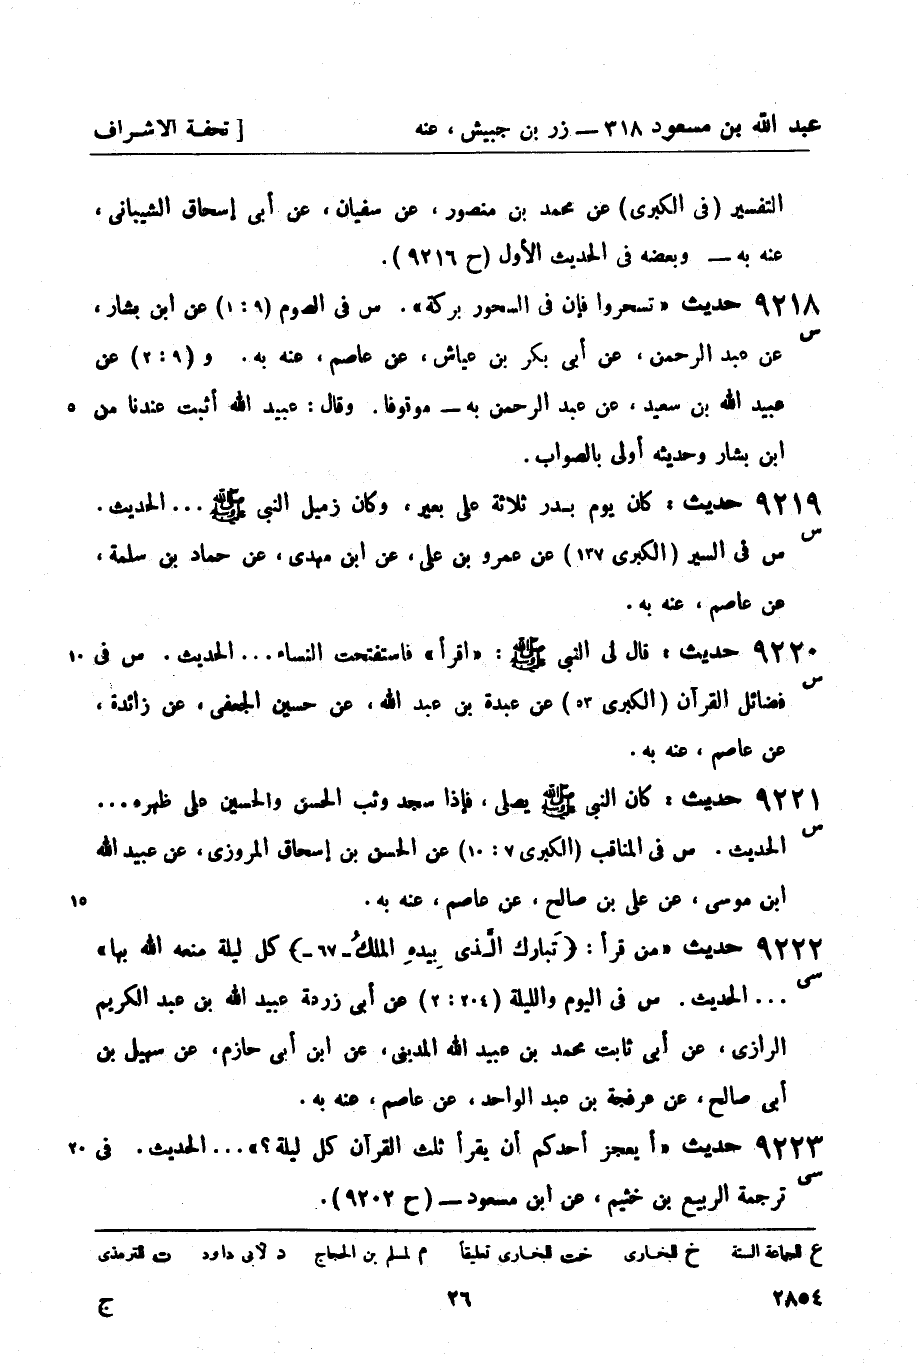 عبد الله بن مسعود ٣١٨ — زر بن حبيش ، عنه [ تحفة الاشراف
التفسير (فى الكبرى) عن محمد بن منصور ، عن سفيان ، عن أبى إسحاق الشيبانى ،
عنه به — وبعضه فى الحديث الأول (ح ٩٢١٦).
٩٢١٨ حديث «تسحروا فإن فى السحور بركة». س فى الصوم (٩ : ١) عن ابن بشار ،
س
عن عبد الرحمن ، عن أبى بكر بن عياش ، عن عاصم ، عنه به. و (٩ : ٢) عن
عبيد الله بن سعيد ، عن عبد الرحمن به — موقوفا. وقال : عبيد الله أثبت عندنا من ٥
ابن بشار وحديثه أولى بالصواب.
٩٢١٩ حديث : كان يوم بدر ثلاثة على بعير ، وكان زميل النبى ﷺ ... الحديث.
س
س فى السير (الكبرى ١٣٧) عن عمرو بن على ، عن ابن مهدى ، عن حماد بن سلمة ،
عن عاصم ، عنه به.
٩٢٢٠ حديث : قال لى النبى ﷺ : «اقرأ» فاستفتحت النساء ... الحديث. س فى ١٠
س
فضائل القرآن (الكبرى ٥٣) عن عبدة بن عبد الله ، عن حسين الجعفى ، عن زائدة ،
عن عاصم ، عنه به.
٩٢٢١ حديث : كان النبى ﷺ يصلى ، فإذا سجد وثب الحسن والحسين على ظهره ...
س
الحديث. س فى المناقب (الكبرى ٧ : ١٠) عن الحسن بن إسحاق المروزى ، عن عبيد الله
ابن موسى ، عن على بن صالح ، عن عاصم ، عنه به. ١٥
٩٢٢٢ حديث «من قرأ : {تَبارك الَّذى بِيدهِ الملكُ ـ ٦٧ ـ} كل ليلة منعه الله بها»
سى
... الحديث. س فى اليوم والليلة (٢٠٤ : ٢) عن أبى زرعة عبيد الله بن عبد الكريم
الرازى ، عن أبى ثابت محمد بن عبيد الله المدينى ، عن ابن أبى حازم ، عن سهيل بن
أبى صالح ، عن عرفجة بن عبد الواحد ، عن عاصم ، عنه به.
٩٢٢٣ حديث «أ يعجز أحدكم أن يقرأ ثلث القرآن كل ليلة؟» ... الحديث. فى ٢٠
سى
ترجمة الربيع بن خثيم ، عن ابن مسعود — (ح ٩٢٠٢).
ع للجماعة الستة خ للبخارى خت للبخارى تعليقاً م لمسلم بن الحجاج د لأبى داود ت للترمذى
٢٨٥٤ ٢٦ ج